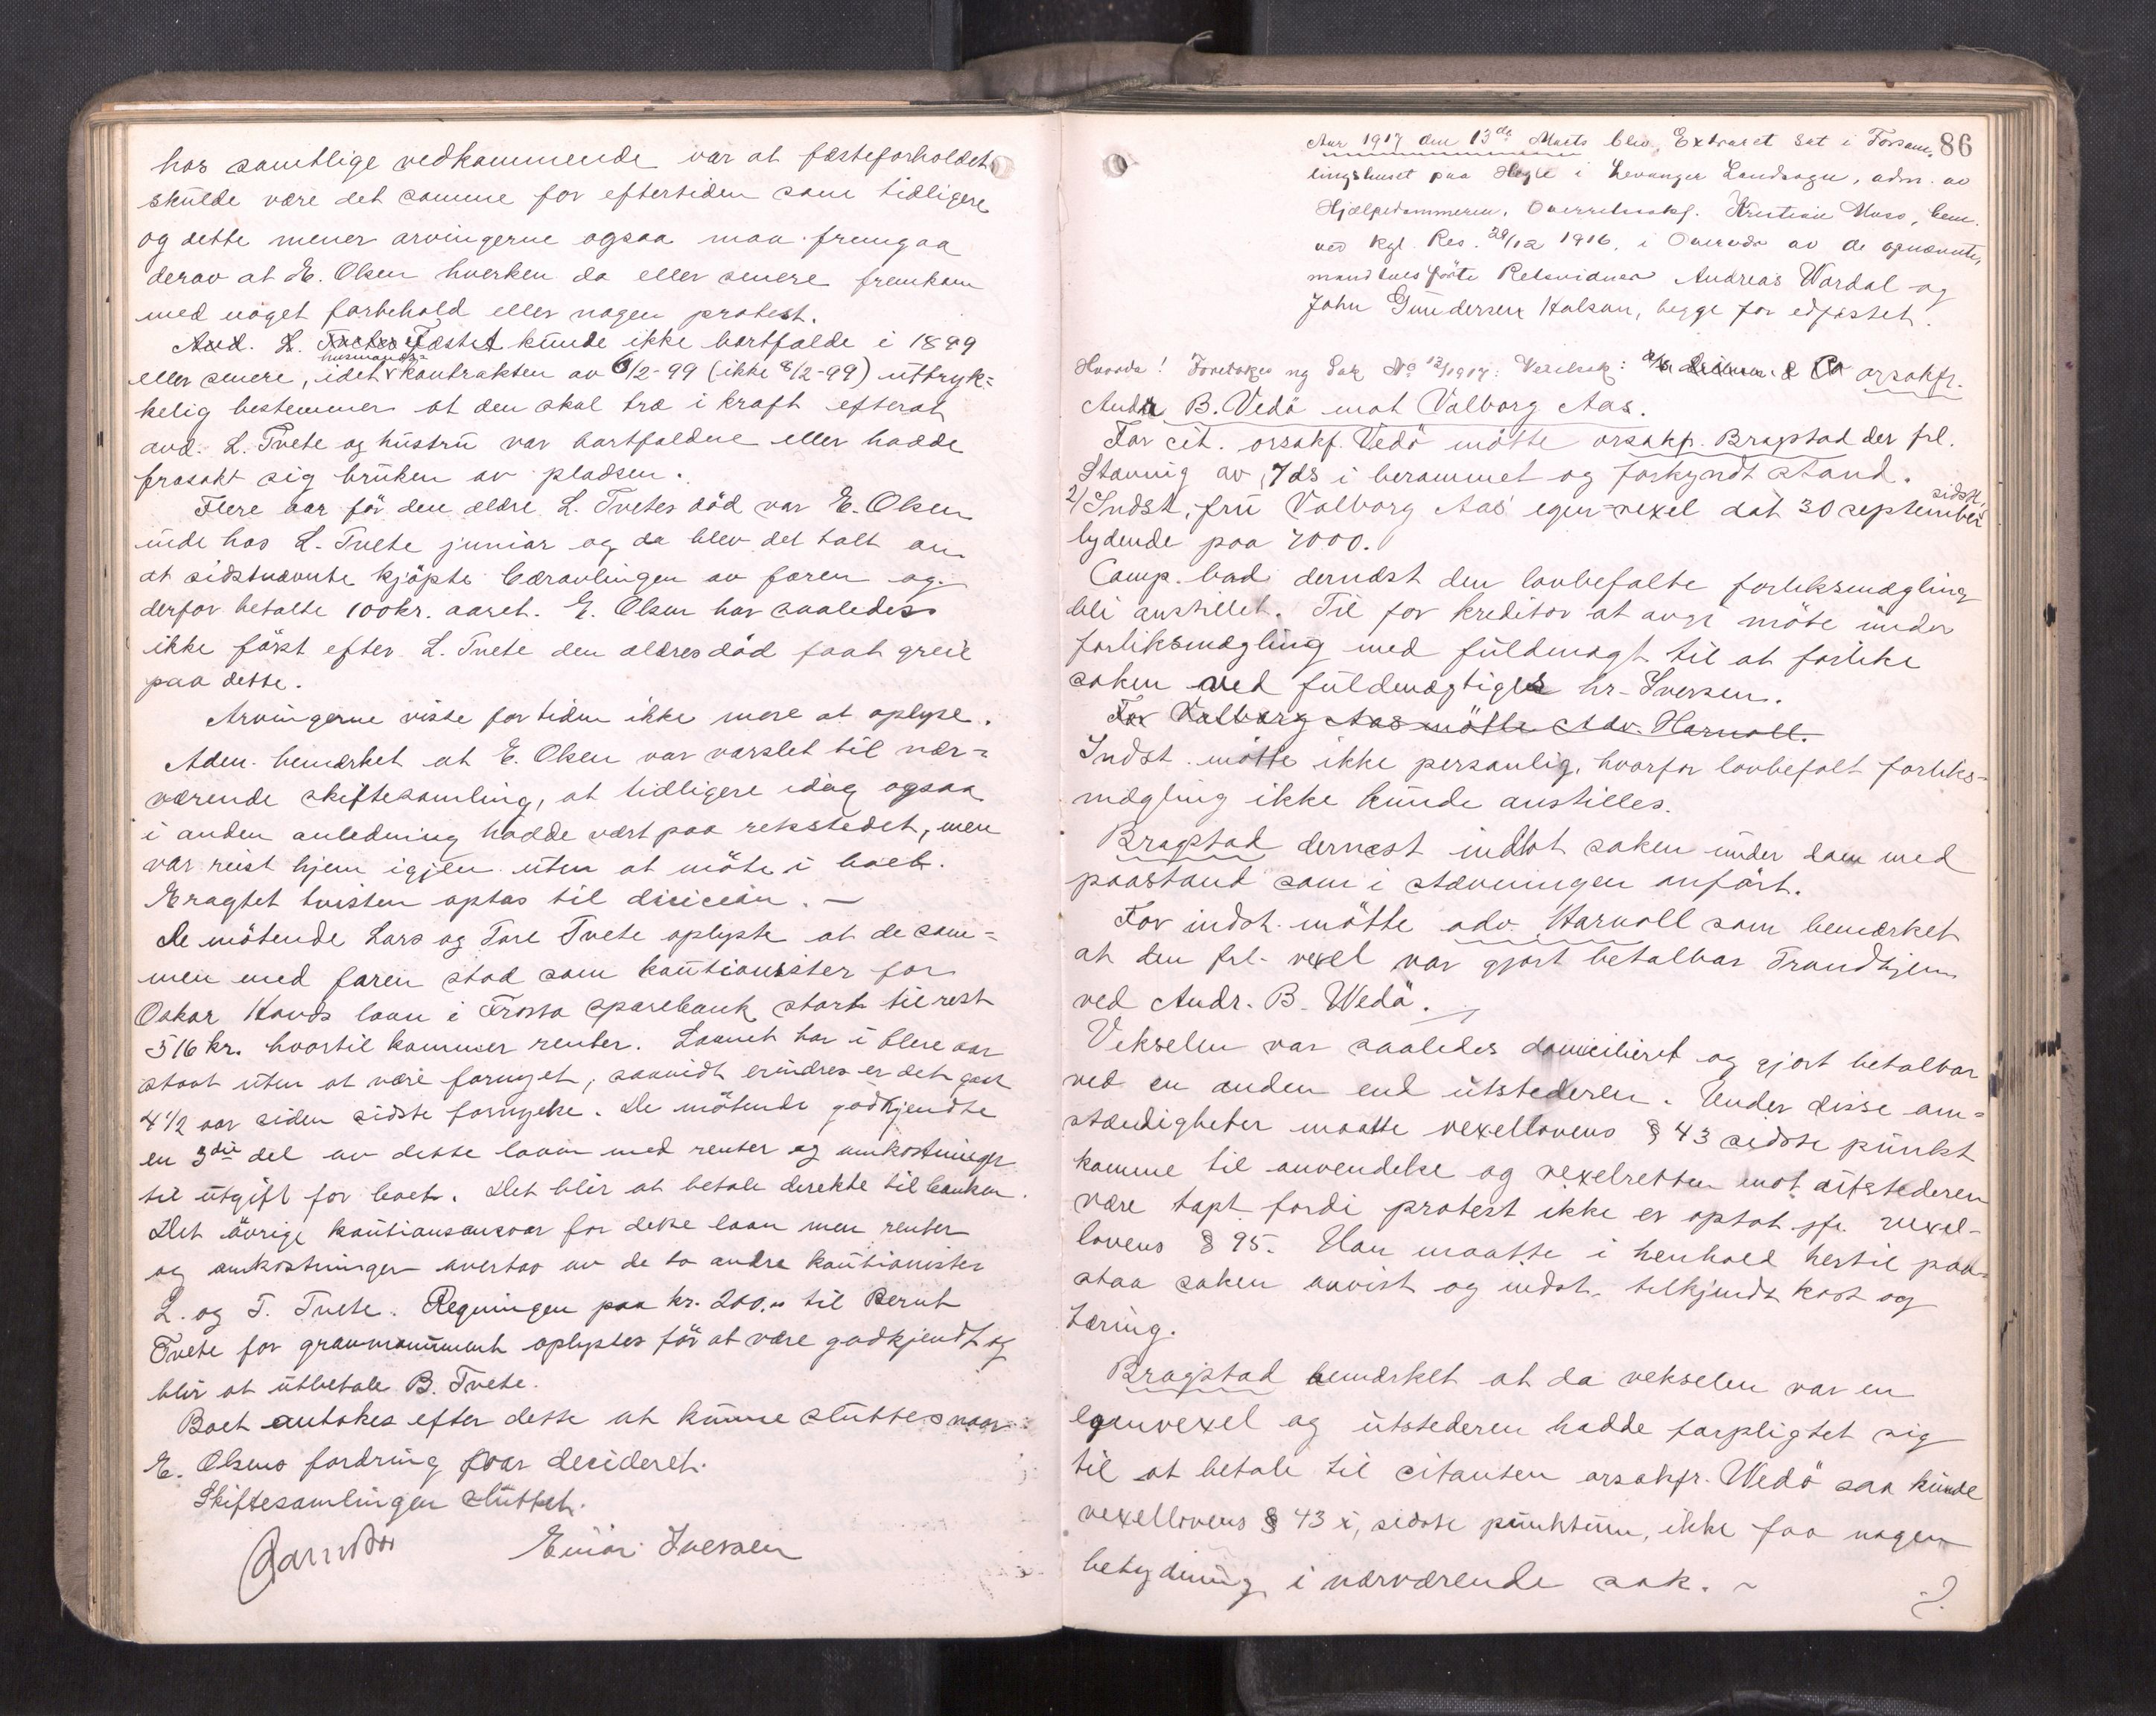 hos samtlige vedkommende var at fæsteforholdet
skulde være det samme for eftertiden som tidligere
og dette mener arvingerne ogsaa maa fremgaa
derav at E. Olsen hverken da eller senere fremkom
med noget forbehold eller nogen protest.
Avd. L. Fæstet kunde ikke bortfalde i 1899
husmands-
eller senere, idet kontrakten av 6/2-99 (ikke 8/2-99) uttryk=
kelig bestemmer at den skal træ i kraft efterat
avd. L. Tvete og hustru var bortfaldne eller hadde
frasakt sig bruken av pladsen.
Flere aar för den ældre L. Tvetes död var E. Olsen
inde hos L. Tvete junior og da blev det talt om
at sidstnævnte kjöpte bæravlingen av faren og
derfor betalte 100 kr. aaret. E. Olsen har saaledes
ikke först efter L. Tvete den ældres död faat greie
paa dette.
Arvingerne visste for tiden ikke mere at oplyse.
Adm. bemerket at E. Olsen var varslet til nær=
værende skiftesamling, at tidligere idag ogsaa
i anden anledning hadde vært paa retsstedet, men
var reist hjem igjen uten at möte i boet.
Eragtet tvisten optas til dicicion. —
De mötende Lars og Tore Tvete oplyste at de sam=
men med faren stod som kautionister for
Oskar Hovds laan i Frosta sparebank stort til rest
516 kr. hvortil kommer renter. Laanet har i flere aar
staat uten at være fornyet, saavidt erindres er det gaat
4 1/2 aar siden sidste fornyelse. De mötende godkjendte
en 3die del av dette laan med renter og omkostninger
til utgift for boet. Det blir at betale direkte til banken.
Det övrige kautionsansvar for dette laan men renter
og omkostninger overtas av de to andre kautionister
L. og T. Tvete. Regningen paa kr. 200.00 til Bernt
Tvete for gravmonument oplystes för at være godkjendt og
blir at utbetale B. Tvete.
Boet antokes efter dette at kunne sluttes naar
E. Olsens fordring var decideret.
Skiftesamlingen sluttet.
Einar Iversen
86
Aar 1917 den 13de Marts blev Extraret sat i Forsam-
lingshuset paa Hegle i Levanger Landsogn, adm. av
Hjælpedommeren, Overretssakf. Kristian Moss, bem.
ved Kgl. Res. 28/12 1916, i Overvær av de opnævnte,
mandtalsförte Retsvidner Andreas Wordal og
John Gundersen Halsan, begge for edfæstet.
Hvorda! Foretokes ny Sak No 12/1917: Vexelsak: orsakfr.
Andr. B. Vedö mot Valborg Aas.
For cit. orsakf. Vedö mötte orsakf. Bragstad der frl.
Stævnig av 7 ds i berammet og forkyndt stand.
sidstl.
2/ Indst. fru Valborg Aas' egen-vexel dat 30 september
lydende paa 4000.
Comp. bad dernæst den lovbefalte forliksmægling
bli anstillet. Til for kreditor at avgi möte under
forliksmægling med fuldmagt til at forlike
saken ved fuldmægtiges hr. Iversen.
For Valborg Aas mötte Adv. Harvoll.
Indst. mötte ikke personlig, hvorfor lovbefalt forliks-
mægling ikke kunde anstilles.
Bragstad dernæst indlot saken under dom med
paastand som i stævningen anfört.
For indst. mötte adv. Harvoll som bemærket
at den frl. vexel var gjort betalbar Trondhjem
ved Andr. B. Wedö.
Vekselen var saaledes domicilieret og gjort betalbar
ved en anden end utstederen. Under disse om=
stændigheter maatte vexellovens § 43 sidste punkt
komme til anvendelse og vexelretten mot utstederen
være tapt fordi protest ikke er optat jfr. vexel-
lovens § 95. Han maatte i henhold hertil paa-
staa saken avvist og indst. tilkjendt kost og
tæring.
Bragstad bemærket at da vekselen var en
egenvexel og utstederen hadde forpligtet sig
til at betale til citanten orsakfr. Wedö saa kunde
vexellovens § 43 x, sidste punktum, ikke faa nogen
betydning i nærværende sak. ~